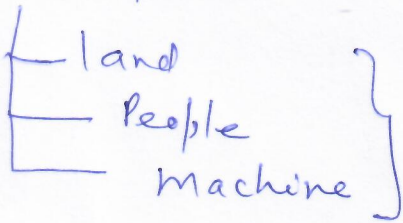 land
People
Machine